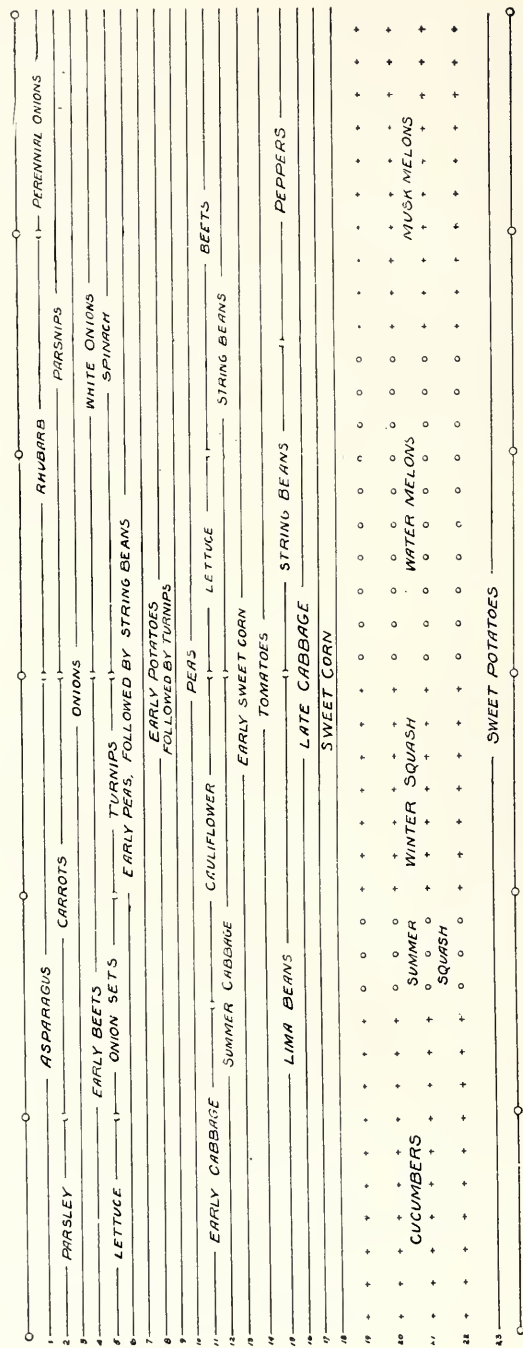 1 ASPARAGUS RHUBARB PERENNIAL ONIONS
2 PARSLEY CARROTS PARSNIPS
3 ONIONS
4 EARLY BEETS WHITE ONIONS
5 LETTUCE ONION SETS TURNIPS SPINACH
6 EARLY PEAS, FOLLOWED BY STRING BEANS
7 EARLY POTATOES
8 FOLLOWED BY TURNIPS
9
10 PEAS
11 EARLY CABBAGE CAULIFLOWER LETTUCE BEETS
12 SUMMER CABBAGE STRING BEANS
13 EARLY SWEET CORN
14 TOMATOES
15 LIMA BEANS STRING BEANS PEPPERS
16 LATE CABBAGE
17 SWEET CORN
18
19
20 CUCUMBERS SUMMER WINTER SQUASH WATER MELONS MUSK MELONS
21 SQUASH
22
23 SWEET POTATOES